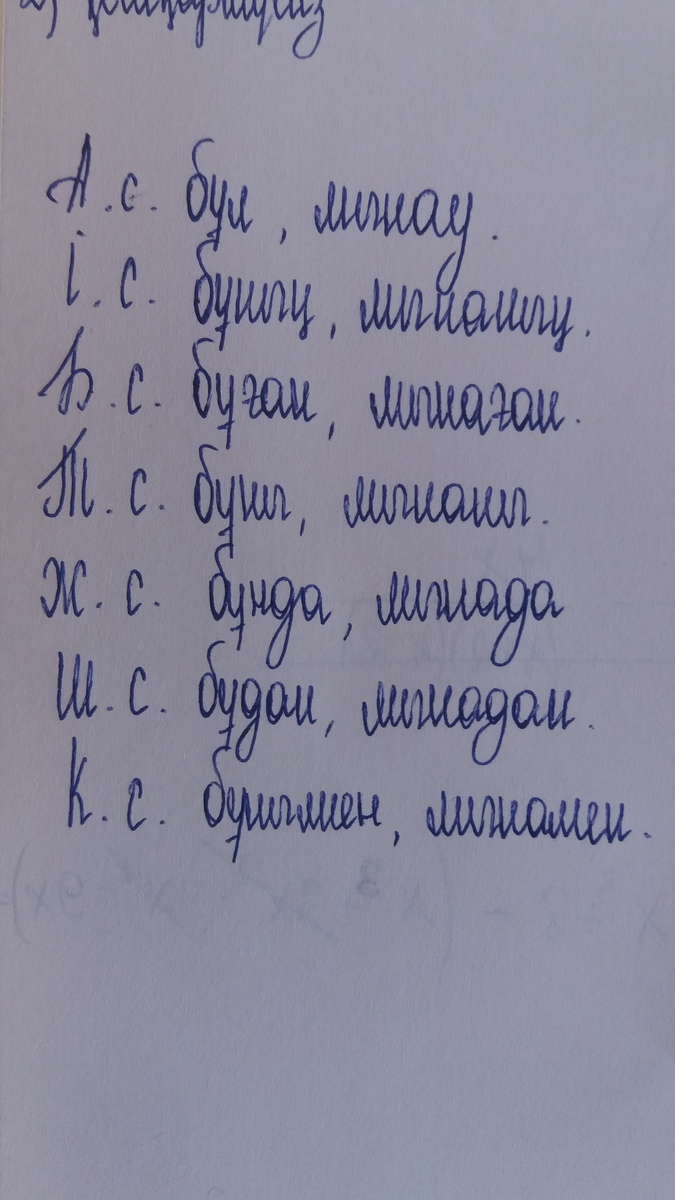 А.с. бұл, мынау.
І.с. бұның, мынаның.
Б.с. бұған, мынаған.
Т.с. бұны, мынаны.
Ж.с. бұнда, мынада
Ш.с. бұдан, мынадан.
К.с. бұнымен, мынамен.